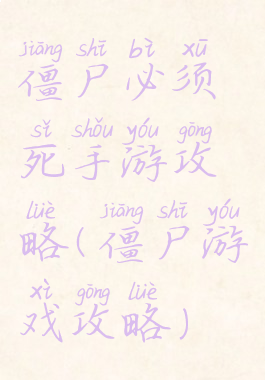 jiāng shī bì xū
僵尸必须
sǐ shǒu yóu gōng
死手游攻
lüè jiāng shī yóu
略(僵尸游
xì gōng lüè
戏攻略)